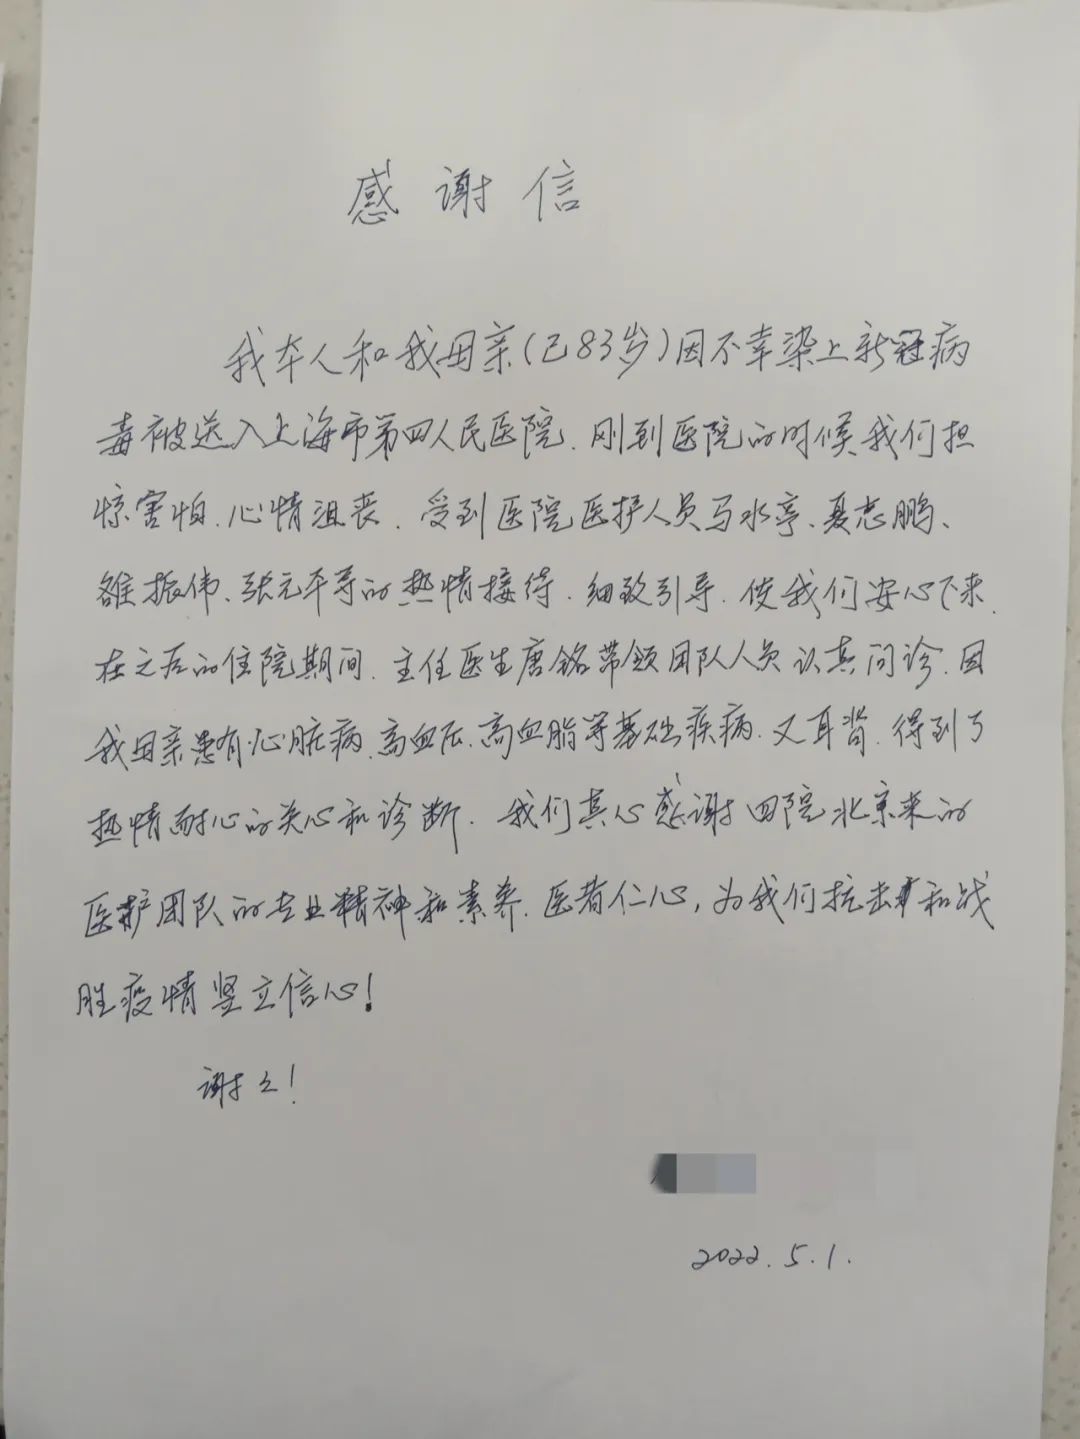 感谢信
我本人和我母亲(已83岁)因不幸染上新冠病
毒被送入上海市第四人民医院.刚到医院的时候,我们担
惊害怕.心情沮丧.受到医院医护人员马水亭、夏志鹏、
雒振伟、张元平等的热情接待.细致引导.使我们安心下来.
在之后的住院期间.主任医生唐铭带领团队人员认真问诊.因
我母亲患有心脏病.高血压.高血脂等基础疾病.又耳背.得到了
热情耐心的关心和诊断.我们真心感谢四院北京来的
医护团队的专业精神和素养.医者仁心,为我们抗击和战
胜疫情坚立信心!
谢々!
2022.5.1.